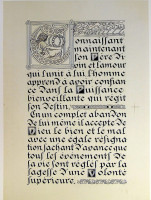 Connaissant
maintenant
son Père di-
vin et l'amour
qui l'unit à lui l'homme
apprend à avoir confian-
ce Dans la Puissance
bienveillante qui régit
son destin.
En un complet aban-Don
de lui même il accepte de
Dieu le bien et le mal
avec une égale résigna-
tion sachant d'avance que
tous les événements de
sa vie sont réglés par la
sagesse d'une Volonté
supérieure.